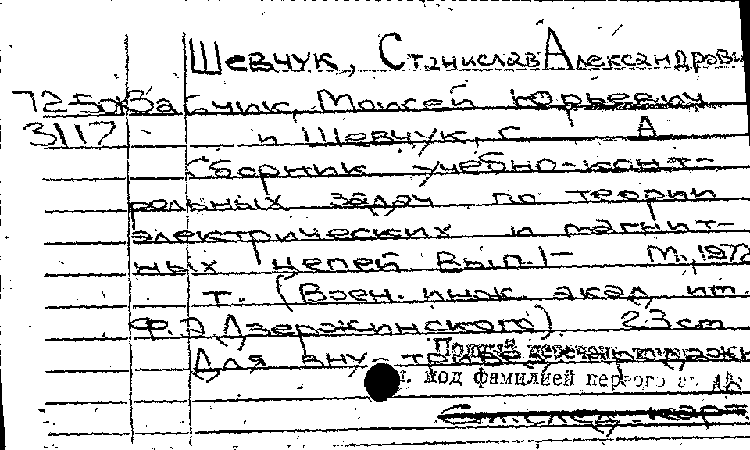 Шевчук, Станислав Александрови
72-50 Бабчик, Моисей Юрьевич
3117 и Шевчук, С А
Сборник учебно-конт-
рольных задач по теории
электрических и магнит-
ных цепей Вып. 1- М., 1972
т. (Воен. инж. акад им.
Ф.Э.Дзержинского). 23 см
Для вну
Полный перечень
под фамилией первого
См. след. кар